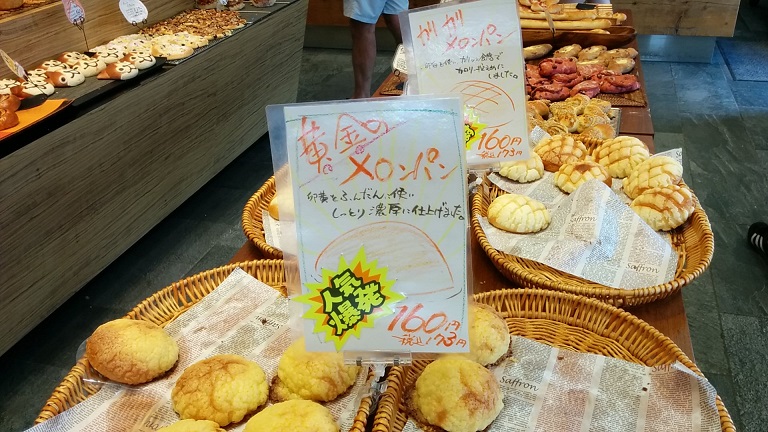 黄金の
メロンパン
卵黄をふんだんに使い
しっとり濃厚に仕上げました。
人気
爆発
160円
税込173円
ガリガリ
メロンパン
カロリー控えめに
しました。
160円
税込173円
Saffron
Saffron
Saffron